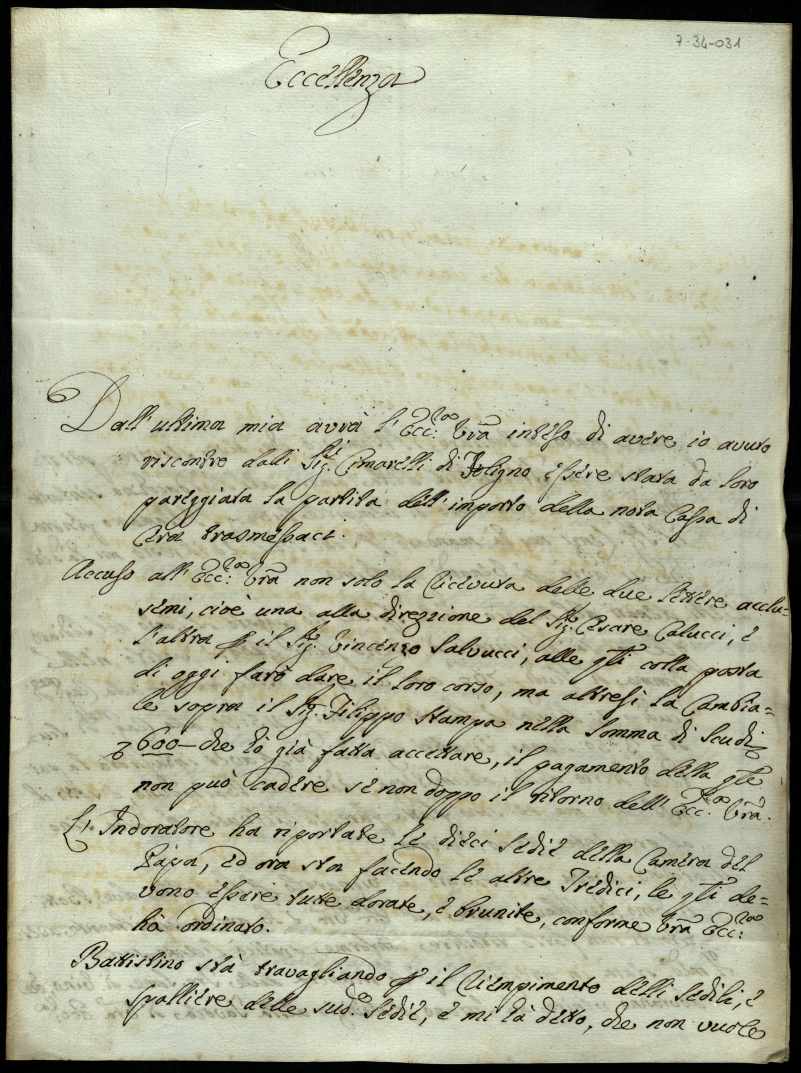 7-34-031
Eccellenza
Dall'ultima mia avrà l'Ecc:za Vrã inteso di avere io avuto
riscontro dalli Sig:ri Cimarelli di Foligno essere stata da loro
pareggiata la partita dell'importo della nota Cassa di
Cera trasmessaci.
Accuso all'Ecc:za Vrã non solo la ricevuta delle due lettere acclu-
semi, cioè una alla direzione del Sig: Cesare Calucci, e
l'altra p il Sig: Vincenzo Salvucci, alle qli colla posta
di oggi farò dare il loro corso, ma altresì la Cambia=
le sopra il Sig: Filippo Stampa nella somma di Scudi
600— che hò già fatta accettare, il pagamento della qle
non può cadere se non doppo il ritorno dell'Ecc:za Vrã.
L'Indoratore ha riportate le dieci sedie della Camera del
Papa, ed ora sta facendo le altre Tredici, le qli de-
vono essere tutte dorate, e brunite, conforme Vrã Ecc:za
hà ordinato.
Battistino stà travagliando p il riempimento delli sedili, e
spalliere delle sud:e sedie, e mi hà detto, che non vuole